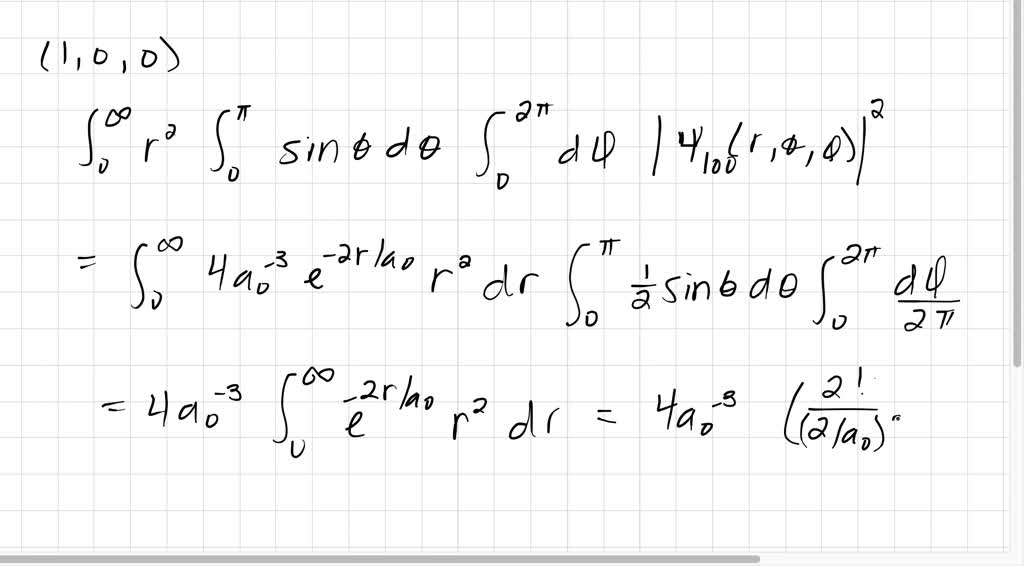 (1,0,0)
∫₀^∞ r² ∫₀^π sinθdθ ∫₀^2π dφ |Ψ₁₀₀(r,θ,φ)|²
= ∫₀^∞ 4a₀⁻³ e^(-2r/a₀) r² dr ∫₀^π ½ sinθdθ ∫₀^2π dφ/2π
= 4a₀⁻³ ∫₀^∞ e^(-2r/a₀) r² dr = 4a₀⁻³ (2!/(2/a₀)